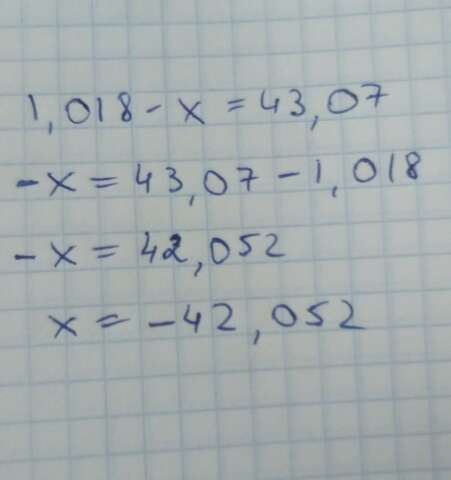 1,018 - x = 43,07
-x = 43,07 - 1,018
-x = 42,052
x = -42,052